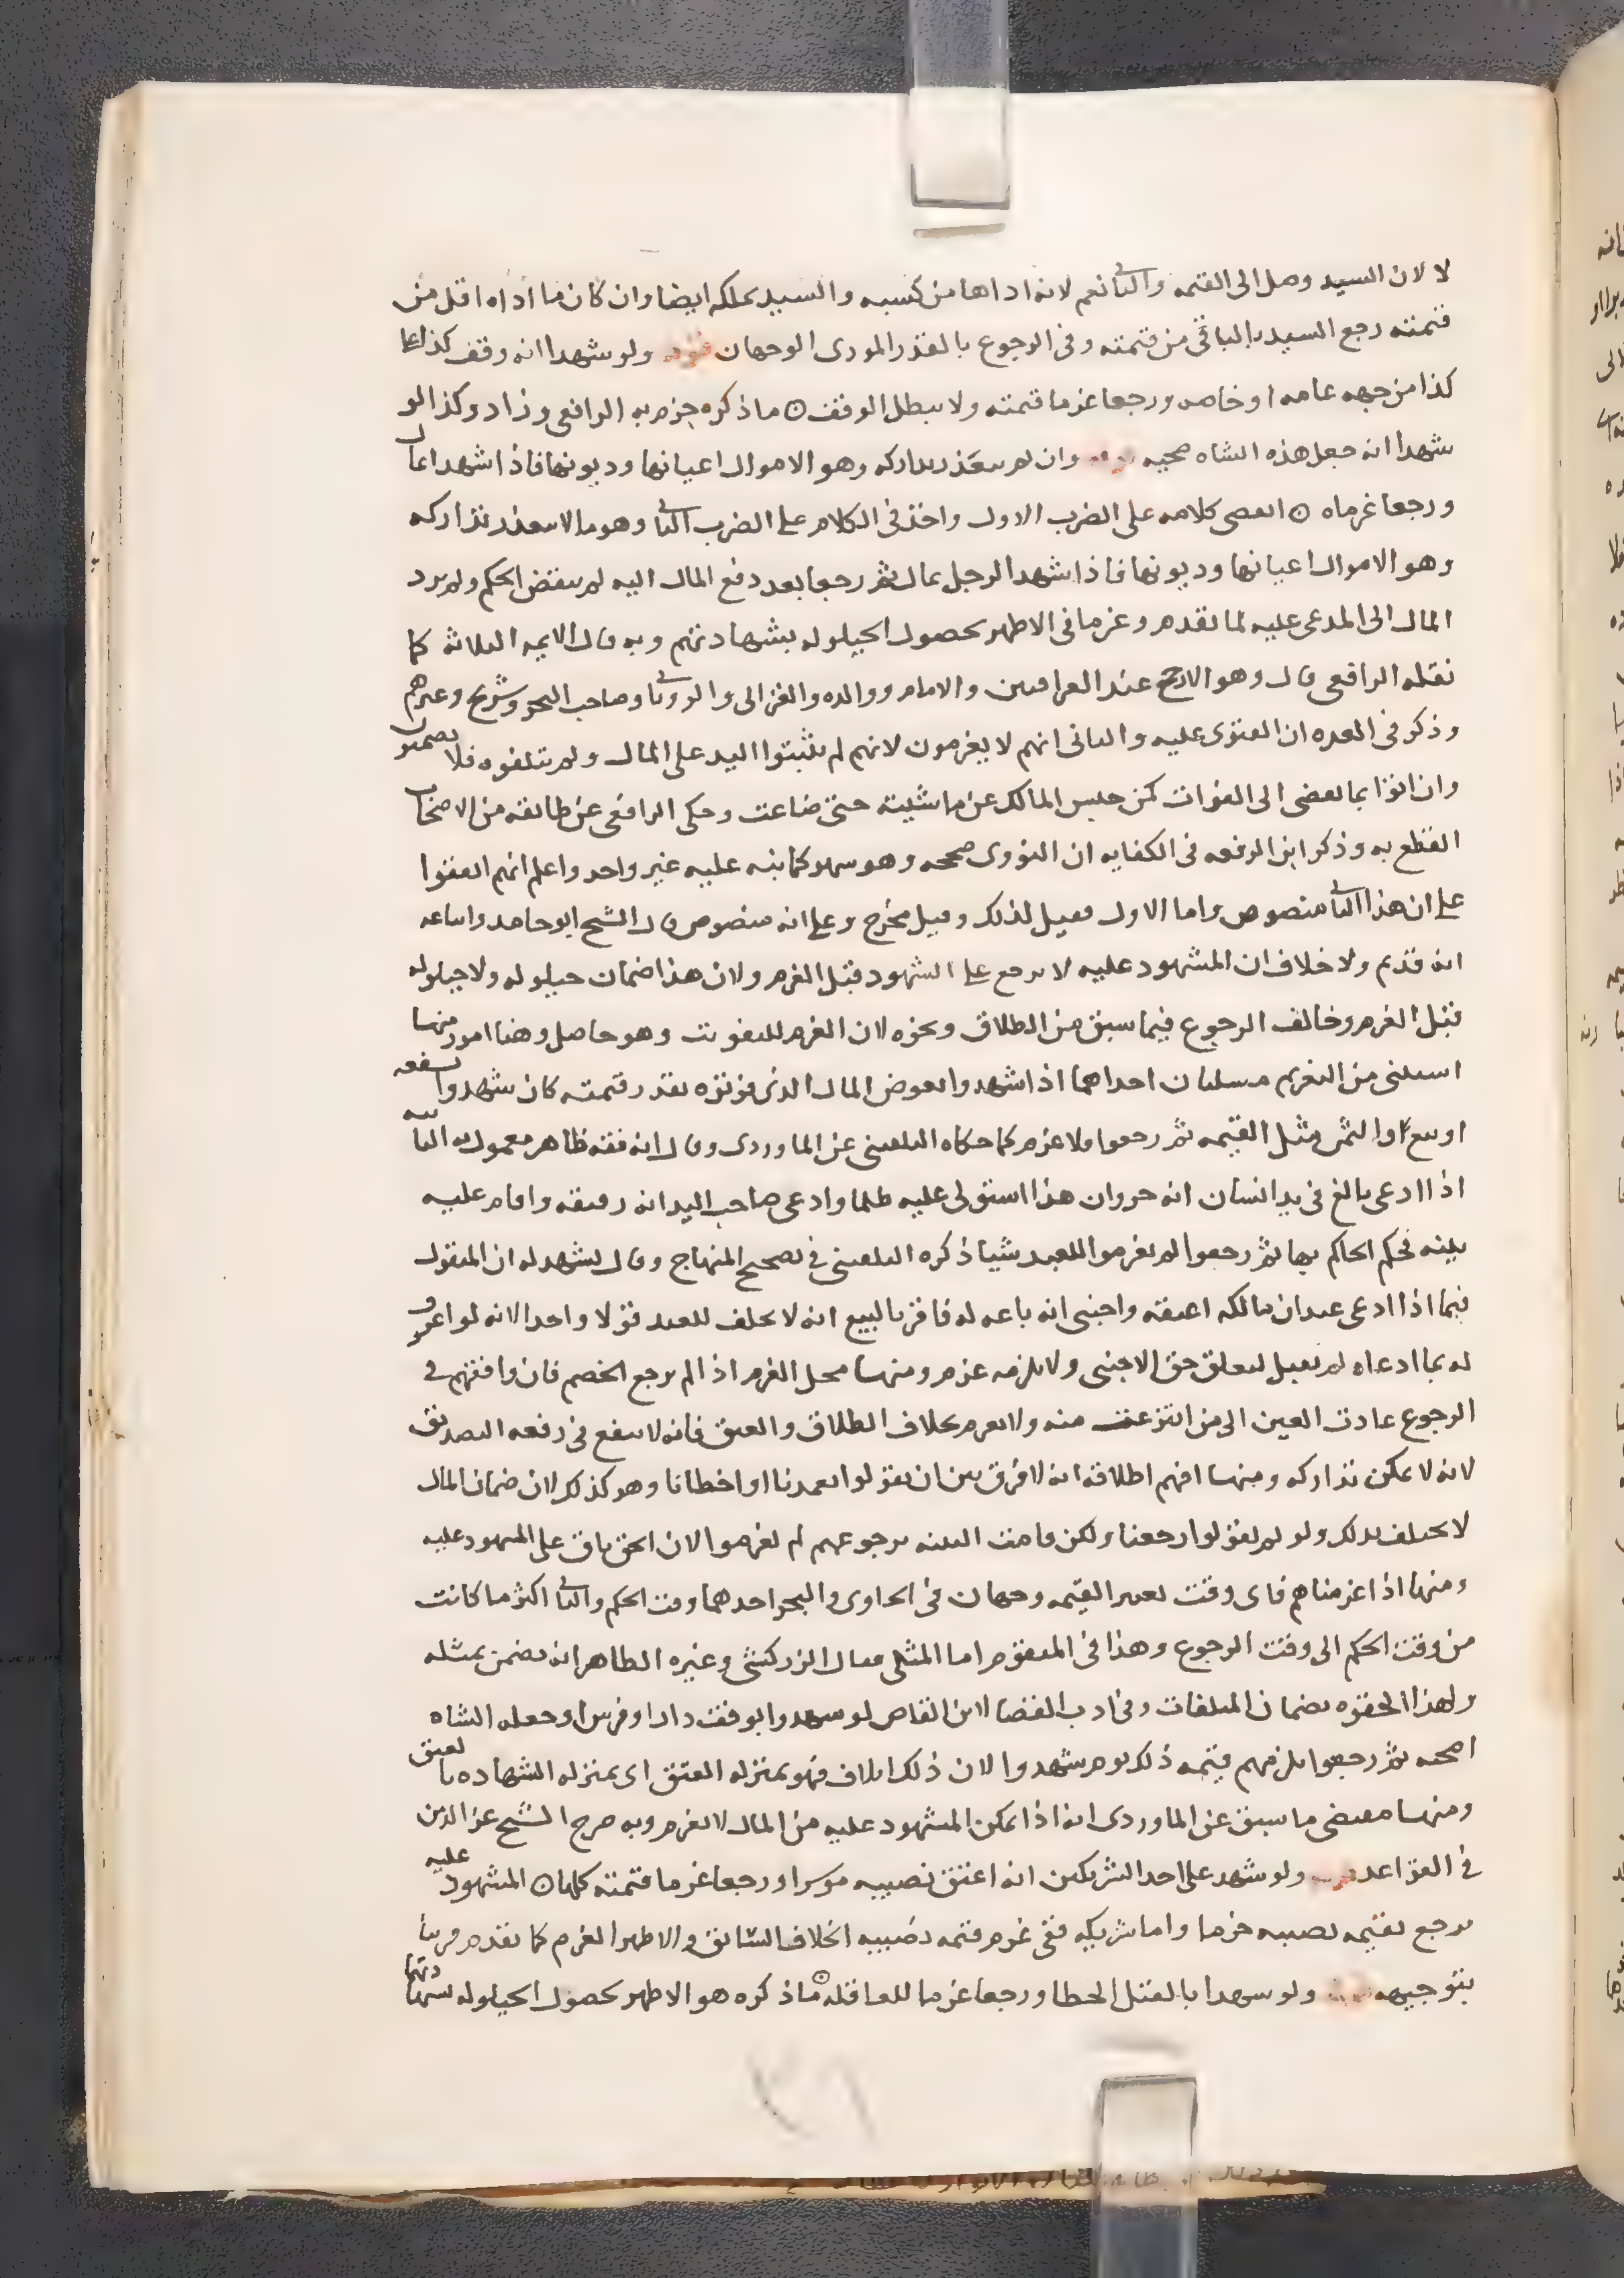 لا لان السيد وصل الى القيمه والثاني نعم لانه اداها من كسبه والسيد يملكه ايضا وان كان ما اداه اقل من
قيمته رجع السيد بالباقي من قيمته وفي الرجوع بالقدر المودى الوجهان ولو شهدا انه وقف كذا على
كذا من جهه عامه او خاصه ورجعا غرما قيمته ولا يبطل الوقف ۞ ما ذكره جزم به الرافعي وزاد وكذا لو
شهدا انه جعل هذه الشاه ضحيه وان لم يتعذر تداركه وهو الاموال اعيانها وديونها فاذا شهدا بمال
ورجعا غرماه ۞ انقضى كلامه على الضرب الاول واخذ في الكلام على الضرب الثاني وهو ما لا يتعذر تداركه
وهو الاموال اعيانها وديونها فاذا شهد الرجل بمال ثم رجعا بعد دفع المال اليه لم ينقض الحكم ولم يرد
المال الى المدعى عليه لما تقدم وغرما في الاظهر بحصول الحيلوله بشهادتهم وبه قال الايمه الثلاثه كما
نقله الرافعي قال وهو الارجح عند العراقيين والامام ووالده والغزالي والروياني وصاحب البحر وشريح وغيرهم
وذكر في العده ان الفتوى عليه والثاني انهم لا يغرمون لانهم لم يثبتوا اليد على المال ولم يتلفوه فلا يضمنون
وان اتوا بما يفضي الى الفوات كمن حبس المالك عن ماشيته حتى ضاعت وحكى الرافعي عن طائفه من الاصحاب
القطع به وذكر ابن الرفعه في الكفايه ان النووي صححه وهو سهو كما نبه عليه غير واحد واعلم انهم اتفقوا
على ان هذا الثاني منصوص واما الاول فقيل لذلك وقيل مخرج وعلى انه منصوص قال الشيخ ابو حامد واتباعه
انه قديم ولا خلاف ان المشهود عليه لا يرجع على الشهود قبل الغرم ولان هذا ضمان حيلوله ولا حيلوله
قبل الغرم وخالف الرجوع فيما سبق من الطلاق ونحوه لان الغرم للتفويت وهو حاصل وهنا امور منها
استثنى من التغريم مسلتان احداهما اذا شهدوا بعوض المال الذي فوتوه بقدر قيمته كان شهدوا بشفعه
او بيع والثمن مثل القيمه ثم رجعوا فلا غرم كما حكاه البلقيني عن الماوردي وقال انه فقه ظاهر معمول به الثانيه
اذا ادعى بالغ في يد انسان انه حر وان هذا استولى عليه ظلما وادعى صاحب اليد انه رقيقه واقام عليه
بينه فحكم الحاكم بها ثم رجعوا لم يغرموا للعبد شيا ذكره البلقيني في تصحيح المنهاج وقال يشهد له ان المنقول
فيما اذا ادعى عبد ان مالكه اعتقه واجنبي انه باعه له فاقر بالبيع انه لا يحلف للعبد قولا واحدا لانه لو اعترف
له بما ادعاه لم يقبل لتعلق حق الاجنبي ولا يلزمه غرم ومنها محل الغرم اذا لم يرجع الخصم فان وافقهم في
الرجوع عادت العين الى من انتزعت منه ولا يغرم بخلاف الطلاق والعتق فانه لا ينفع في رفعه التصديق
لانه لا يمكن تداركه ومنها افهم اطلاقه انه لا فرق بين ان يقولوا تعمدنا او اخطانا وهو كذلك لان ضمان المال
لا يختلف بذلك ولو لم يقولوا رجعنا ولكن قامت البينه برجوعهم لم يغرموا لان الحق باق على المشهود عليه
ومنها اذا غرمناهم فاى وقت تعتبر القيمه وجهان في الحاوي والبحر احدهما وقت الحكم والثاني اكثر ما كانت
من وقت الحكم الى وقت الرجوع وهذا في المتقوم اما المثلي فقال الزركشي وغيره الظاهر انه يضمن بمثله
ولهذا الحقوه بضمان المتلفات وفي ادب القضا لابن القاص لو شهدوا بوقف دارا وفرس او جعله الشاه
اضحيه ثم رجعوا يلزمهم قيمه ذلك يوم شهدوا لان ذلك اتلاف فهو بمنزله العتق اى بمنزله الشهاده بالعتق
ومنها مقتضى ما سبق عن الماوردي انه اذا تمكن المشهود عليه من المال لا يغرم وبه صرح الشيخ عز الدين
في القواعد ولو شهد على احد الشريكين انه اعتق نصيبه موسرا ورجعا غرما قيمته كلها ۞ المشهود عليه
يرجع بقيمه نصيبه جزما واما شريكه ففي غرم قيمه نصيبه الخلاف السابق والاظهر الغرم كما تقدم قريبا
بتوجيهه ولو شهدا بالقتل الخطا ورجعا غرما للعاقله ۞ ما ذكره هو الاظهر بحصول الحيلوله بشهادتهما